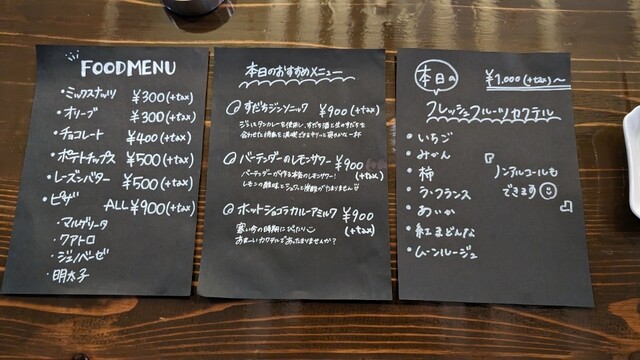 FOODMENU
・ミックスナッツ ¥300(+tax)
・オリーブ ¥300(+tax)
・チョコレート ¥400(+tax)
・ポテトチップス ¥500(+tax)
・レーズンバター ¥500(+tax)
・ピザ ALL¥900(+tax)
・マルゲリータ
・クアトロ
・ジェノベーゼ
・明太子
本日のおすすめメニュー
すだちジントニック ¥900(+tax)
バーテンダーのレモンサワー ¥900(+tax)
バーテンダーが作る本気のレモンサワー!
レモンの酸味と
ホットショコラカルーアミルク ¥900(+tax)
寒い今の時期にぴったり
あま〜いカクテルであったまりませんか?
本日の ¥1,000(+tax)〜
フレッシュフルーツカクテル
・いちご
・みかん
・柿
・ラ・フランス
・紅まどんな
・ムーンルージュ
『ノンアルコールも
できます』